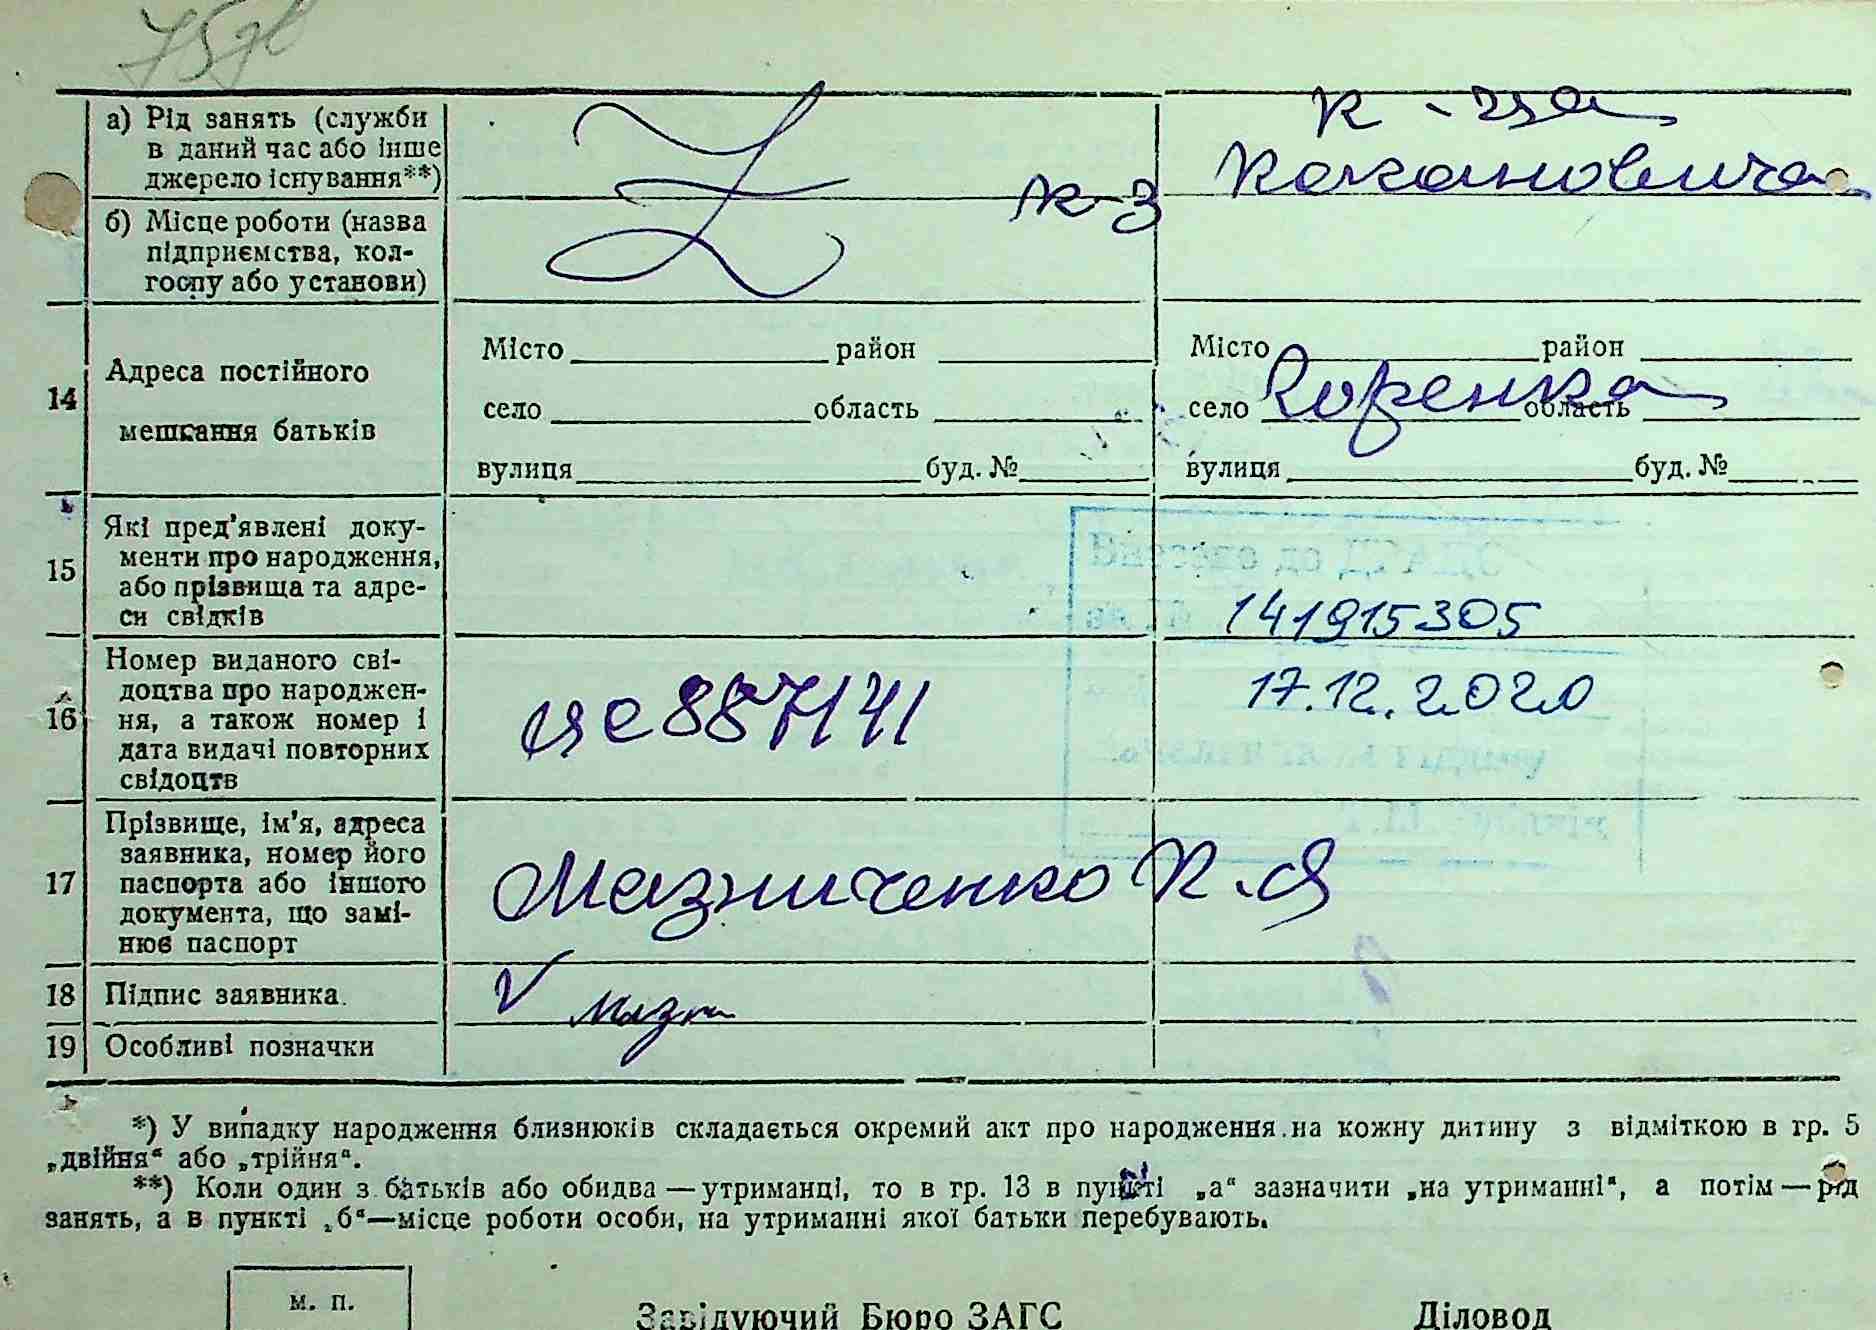 а) Рід занять (служби
в даний час або інше
джерело існування**)
к-ця
к-з Кагановича
б) Місце роботи (назва
підприємства, кол-
госпу або установи)
14 Адреса постійного
мешкання батьків
Місто район
село область
вулиця буд. №
Місто район
село Коренка область
вулиця буд. №
15 Які пред'явлені доку-
менти про народження,
або прізвища та адре-
си свідків
Внесено до ДРАЦС
за № 141915305
16 Номер виданого сві-
доцтва про народжен-
ня, а також номер і
дата видачі повторних
свідоцтв
ЦЯ 887141
17.12.2020
17 Прізвище, ім'я, адреса
заявника, номер його
паспорта або іншого
документа, що замі-
нює паспорт
Мазниченко К.Я
18 Підпис заявника.
19 Особливі позначки
*) У випадку народження близнюків складається окремий акт про народження на кожну дитину з відміткою в гр. 5
„двійня“ або „трійня“.
**) Коли один з батьків або обидва — утриманці, то в гр. 13 в пункті „а“ зазначити „на утриманні“, а потім — рід
занять, а в пункті „б“—місце роботи особи, на утриманні якої батьки перебувають.
м. п.
Завідуючий Бюро ЗАГС
Діловод